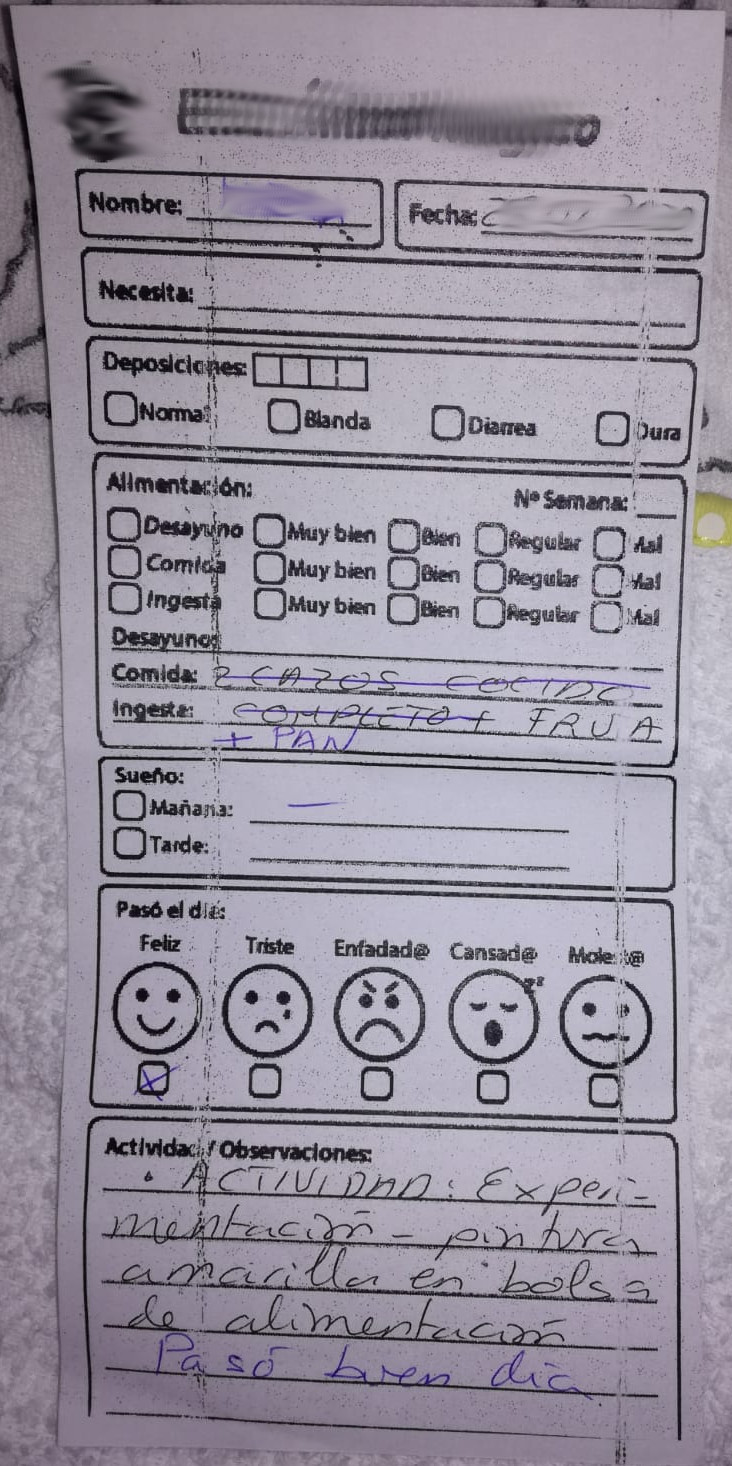 Nombre:
Fecha:
Necesita:
Deposiciones:
Normal Blanda Diarrea Dura
Alimentación:
Nº Semana:
Desayuno Muy bien Bien Regular Mal
Comida Muy bien Bien Regular Mal
Ingesta Muy bien Bien Regular Mal
Desayuno:
Comida: 2 CAZOS COCIDO
Ingesta: COMPLETO + FRUA
+ PAN
Sueño:
Mañana: —
Tarde:
Pasó el día:
Feliz Triste Enfadad@ Cansad@ Molest@
zz
Actividad / Observaciones:
· ACTIVIDAD: Experi-
mentación - pintura
amarilla en bolsa
de alimentación
Pasó buen día